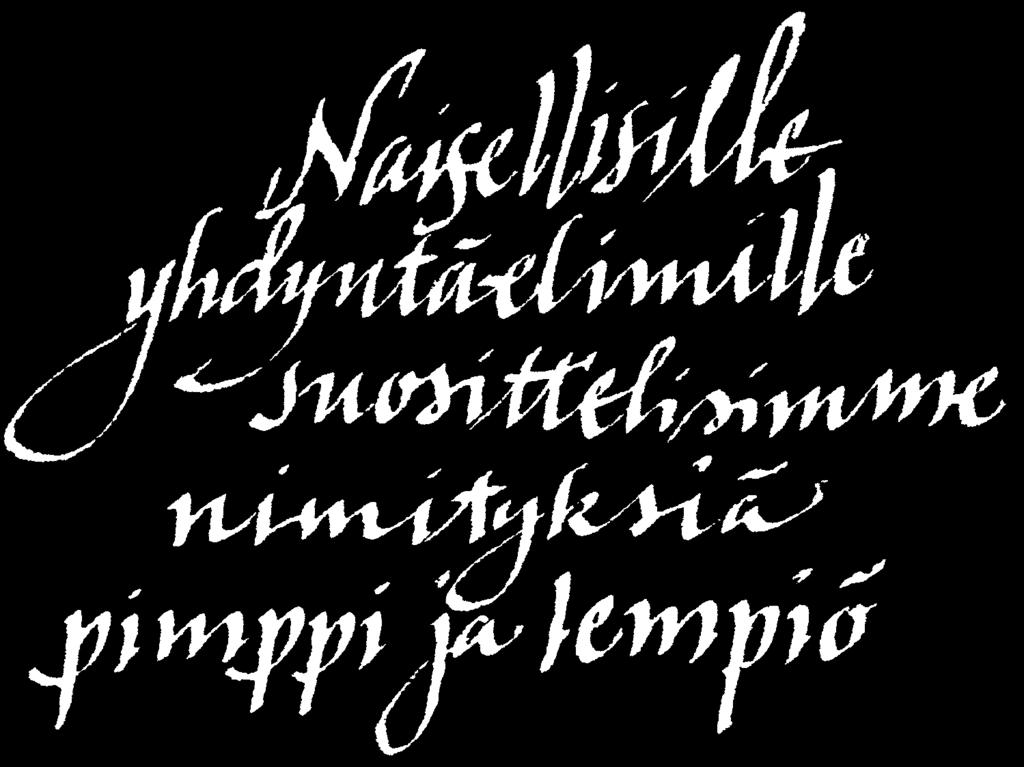 Naisellisille
yhdyntäelimille
suosittelisimme
nimityksiä
pimppi ja lempiö